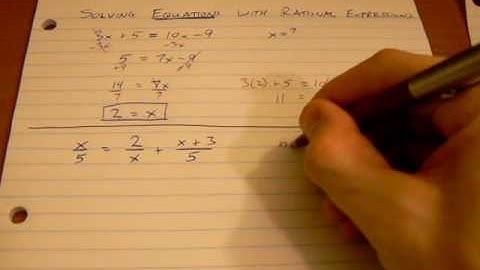 SOLVING EQUATIONS WITH RATIONAL EXPRESSIONS
3x + 5 = 10x - 9 x = ?
-3x -3x
5 = 7x - 9
+9 +9
14/7 = 7x/7 3(2) + 5 = 10
2 = x 11 =
x/5 = 2/x + (x + 3)/5